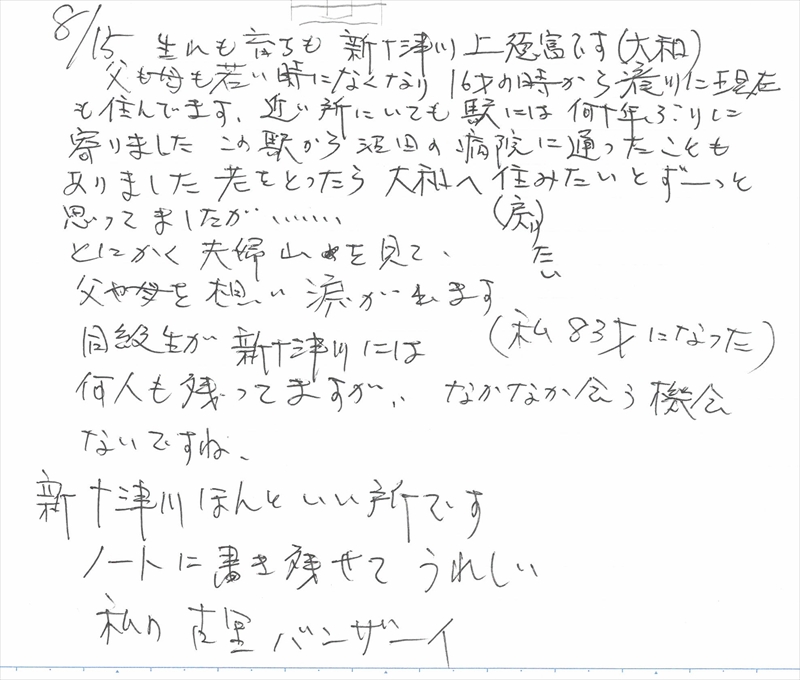 8/15 生れも育ちも新十津川上徳富です(大和)
父も母も若い時になくなり16才の時から滝川に現在
も住んでます、近い所にいても駅には何十年ぶりに
寄りました この駅から沼田の病院に通ったことも
ありました 老をとったら大和へ住みたいとずーっと
思ってましたが…… (戻りたい
とにかく夫婦山を見て、
父や母を想い涙が出ます
同級生が新十津川には (私83才になった)
何人も残ってますが、なかなか会う機会
ないですね、
新十津川ほんといい所です
ノートに書き残せてうれしい
私の古里バンザーイ